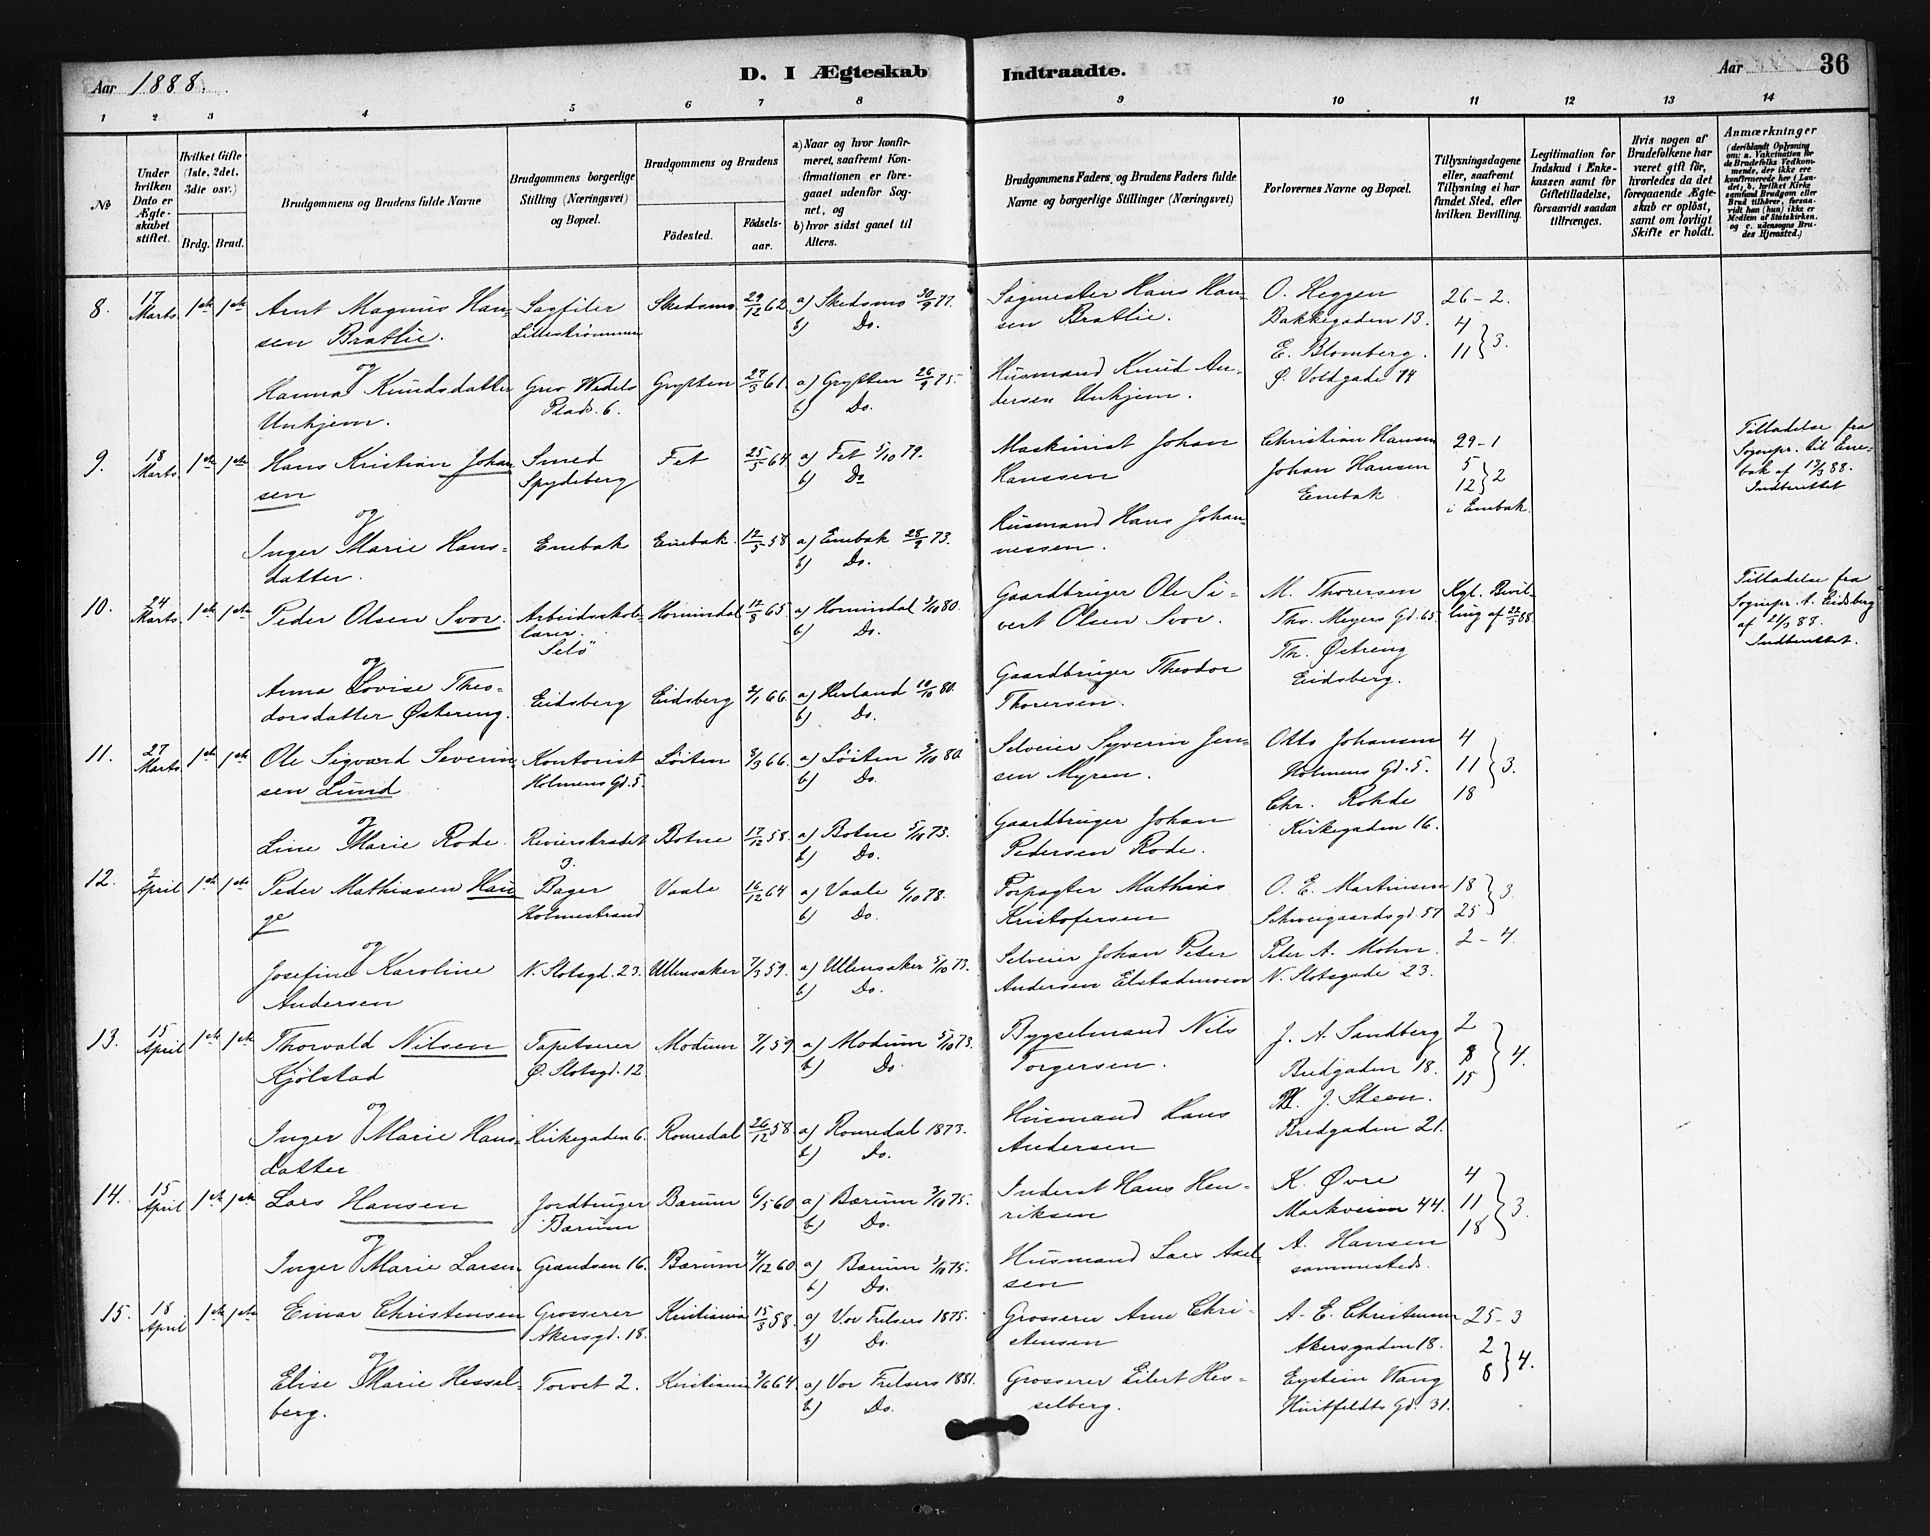 Aar 1888.
D. I Ægteskab Indtraadte.
Aar
36
1 2 3 4 5 6 7 8 9 10 11 12 13 14
No
Under hvilken Dato er Ægteskabet stiftet.
Hvilket Gifte (1ste, 2det, 3die osv.)
Brdg. Brud.
Brudgommens og Brudens fulde Navne
Brudgommens borgerlige Stilling (Næringsvei) og Bopæl.
Brudgommens og Brudens
Födested.
Födselsaar.
a) Naar og hvor konfirmeret, saafremt Konfirmationen er foregaaet udenfor Sognet, og
b) hvor sidst gaaet til Alters.
Brudgommens Faders og Brudens Faders fulde Navne og borgerlige Stillinger (Næringsvei)
Forlovernes Navne og Bopæl.
Tillysningsdagene eller, saafremt Tillysning ei har fundet Sted, efter hvilken Bevilling.
Legitimation for Indskud i Enkekassen samt for Giftetilladelse, forsaavidt saadan tiltrænges.
Hvis nogen af Brudefolkene har været gift för, hvorledes da det foregaaende Ægteskab er oplöst, samt om lovligt Skifte er holdt.
Anmærkninger
(deriblandt Oplysning om: a. Vakcination for de Brudefolks Vedkommende, der ikke ere konfirmerede her i Landet; b. hvilket Kirkesamfund Brudgom eller Brud tilhører, forsaavidt han (hun) ikke er Medlem af Statskirken, og c. udensogns Brudes Hjemsted.)
8. 17 Marts 1ste 1ste Arnt Magnus Han- Sagfiler Skedsmo 29/12 62 a) Skedsmo 30/9 77. Sagmester Hans Han- O. Heggen 26-2.
sen Brattlie. Lillestrømmen b) Do. sen Brattlie. Bakkegaden 13. 4
og E. Blomberg. 11 } 3.
Hanna Knudsdatter Grev Wedels Grytten 27/3 61. a) Grytten 26/9 75. Husmand Knud An- Ø. Voldgade 14
Unhjem. Plads 6. b) Do. dersen Unhjem.
9. 18 Marts 1ste 1ste Hans Kristian Johan Smed Fet 25/5 64. a) Fet 5/10 79. Maskinist Johan Christian Hansen 29-1 Tilladelse fra
sen Spydeberg b) Do Hanssen Johan Hansen 5 Sognepr. til Ene-
og Enebak 12 } 2 bak af 13/3 88.
i Enebak. Indberettet
Inger Marie Hans- Enebak Enebak. 12/5 58 a) Enebak 28/9 73. Husmand Hans Johan-
datter. b) Do. nessen.
10. 24 Marts 1ste 1ste Peder Olsen Svor. Arbeidsskole- Hornindal 12/8 65. a) Hornindal 3/10 80. Gaardbruger Ole Si- M. Thorersen Kgl. Bevil- Tilladelse fra
lærer. b) Do. vert Olsen Svor. Thv. Meyers Gd. 65. ling af 22/3 88. Sognepr. t. Eidsberg
Selö Th. Østreng af 21/3 88.
og Eidsberg. Indberettet.
Anna Lovise Theo- Eidsberg Eidsberg 2/1 66. a) Herland 10/10 80. Gaardbruger Theodor
dorsdatter Østereng. b) Do. Thorersen.
11. 27 Marts 1ste 1ste Ole Sigvard Severin- Kontorist Löiten 8/3 66. a) Löiten 3/10 80. Selveier Syverin Jen- Otto Johansen 4
sen Lund Holmens Gd. 5. b) Do. sen Myren. Holmens Gd. 5. 11 } 3.
og Chr. Rohde 18
Line Marie Rode. Revierstrædet Botne 17/12 58. a) Botne 5/10 73. Gaardbruger Johan Kirkegaden 16.
3. b) Do. Pedersen Rode.
12. 2 April 1ste 1ste Peder Mathiasen Hau Bager Vaale 16/12 64 a) Vaale 6/10 78. Forpagter Mathias O. E. Martinsen 18 } 3.
ge Holmestrand b) Do. Kristofersen Schweigaardsgd. 57 25
og 2-4.
Josefine Karoline N. Slotsgd. 23. Ullensaker 7/3 59. a) Ullensaker 5/10 73. Selveier Johan Peter Peter A. Mohn.
Andersen b) Do. Andersen Elstadmoen N. Slotsgade 23.
13. 15 April 1ste 1ste Thorvald Nilsen Tapetserer Modum 7/1 59 a) Modum 5/10 73. Bygselmand Nils J. A. Sandberg 2
Kjölstad Ø. Slotsgd. 12. b) Do. Torgersen. Bredgaden 18. 8 } 4.
og J. Steen. 15
Inger Marie Hans- Kirkegaden 6. Romedal 26/12 58 a) Romedal 1873. Husmand Hans Bredgaden 21.
datter b) Do. Andersen
14. 15 April 1ste 1ste Lars Hansen Jordbruger Bærum 6/5 60 a) Bærum 3/10 75. Inderst Hans Hen- K. Øvre 4
Bærum b) Do. riksen Markveien 44. 11 } 3.
og A. Hansen 18
Inger Marie Larsen Grændsen 16. Bærum 4/12 60. a) Bærum 3/10 75. Husmand Lars Axel- sammesteds.
b) Do. sen
15. 18 April 1ste 1ste Einar Christensen Grosserer Kristiania 15/3 58. a) Vor Frelsers 1875. Grosserer Arne Chri- A. E. Christensen 25-3
Akersgd. 18. b) Do. stensen Akersgaden 18. 2
og 8 } 4.
Elise Marie Hessel- Torvet 2. Kristiania 3/6 64. a) Vor Frelsers 1881. Grosserer Eilert Hes- Eystein Wang
berg. b) Do. selberg. Huitfeldts Gd. 31.